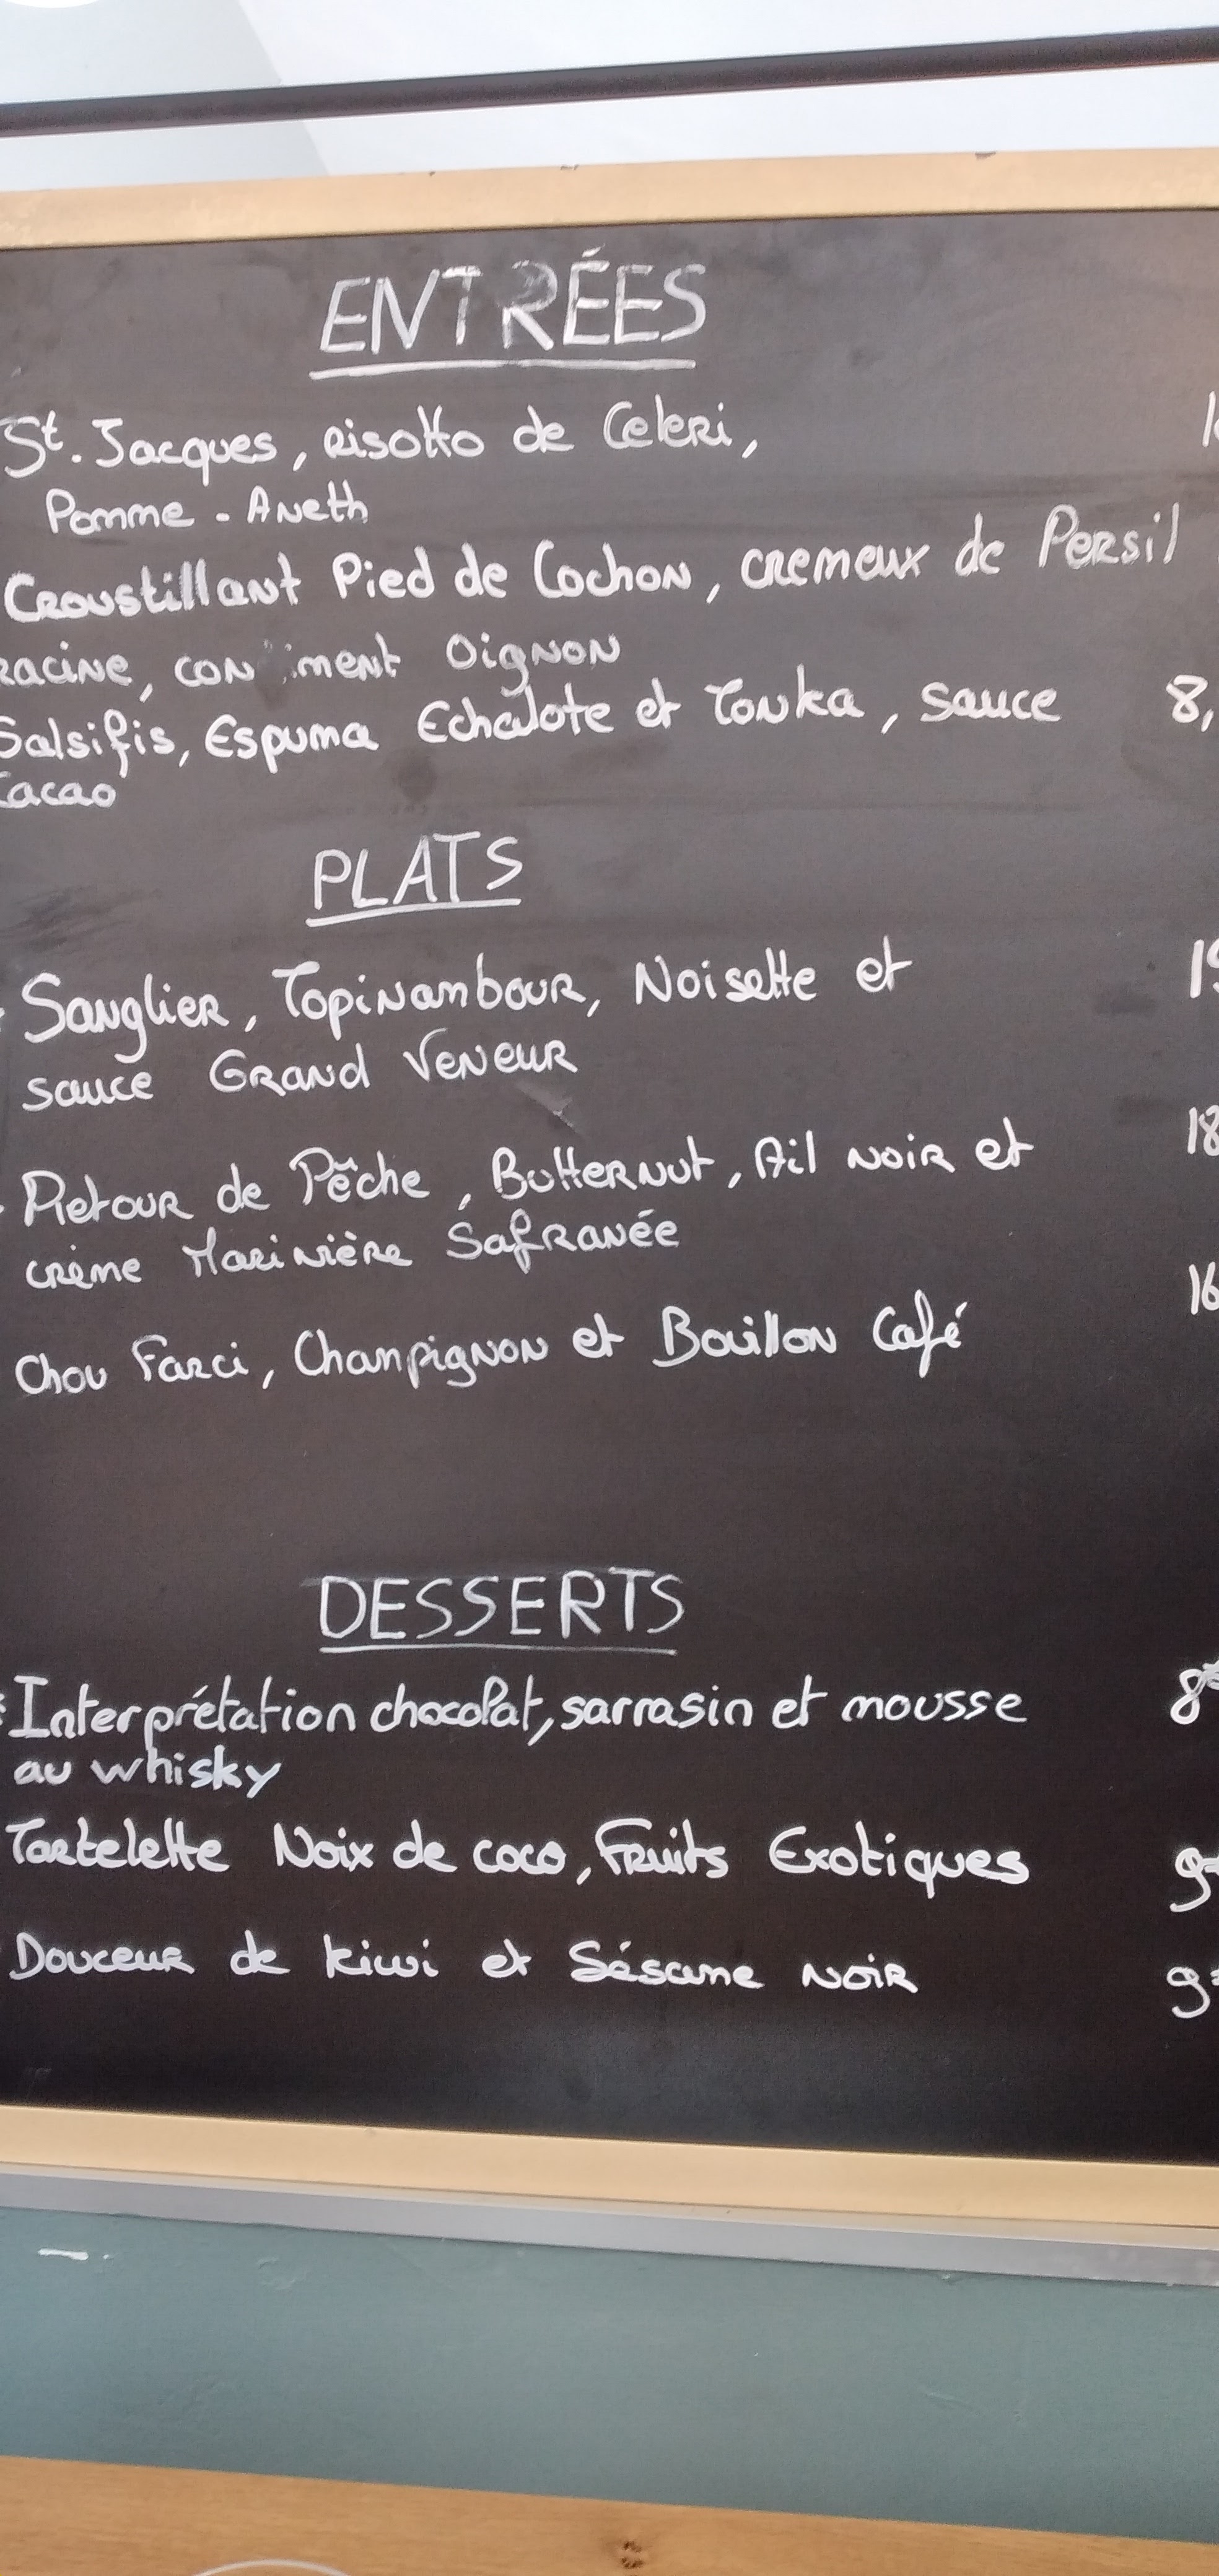 ENTRÉES
St. Jacques, risotto de Celeri,
Pomme - Aneth
Croustillant Pied de Cochon, cremeux de Persil
racine, Oignon
Salsifis, Espuma Echalote et Tonka, sauce 8,
Cacao
PLATS
Sanglier, Topinambour, Noisette et
sauce Grand Veneur
Retour de Pêche, Butternut, Ail noir et 18
crème Marinière Safranée
Chou Farci, Champignon et Bouillon Café 16
DESSERTS
Interprétation chocolat, sarrasin et mousse 8
au whisky
Tartelette Noix de coco, Fruits Exotiques 9
Douceur de kiwi et Sésame noir 9